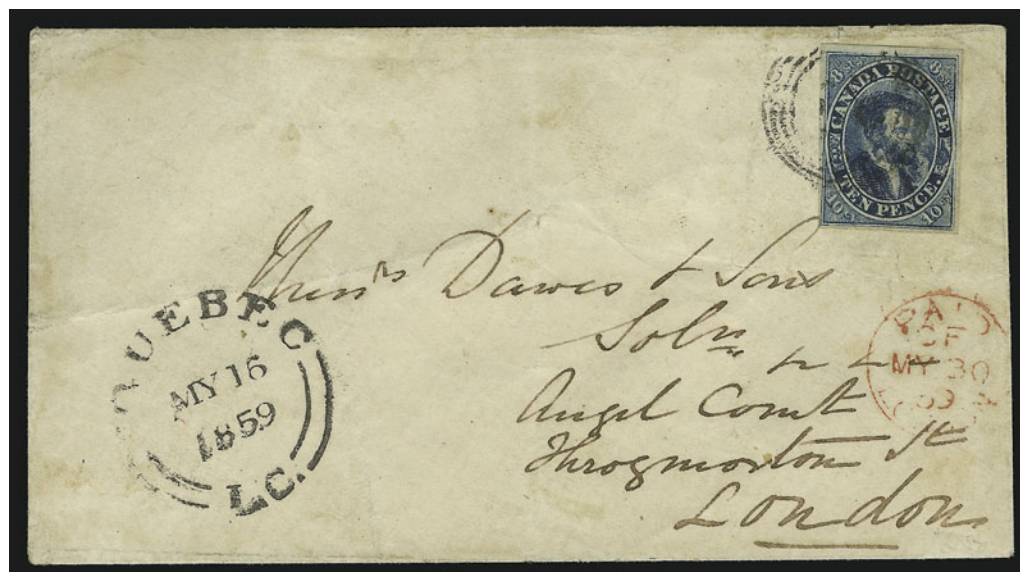 8 Stg 8 Stg
CANADA POSTAGE
TEN PENCE.
10 cy 10 cy
Messrs Dawes & Sons
Solrs
Angel Court
Throgmorton St
London
QUEBEC
MY 16
1859
L.C.
PAID
CF
MY 30
59